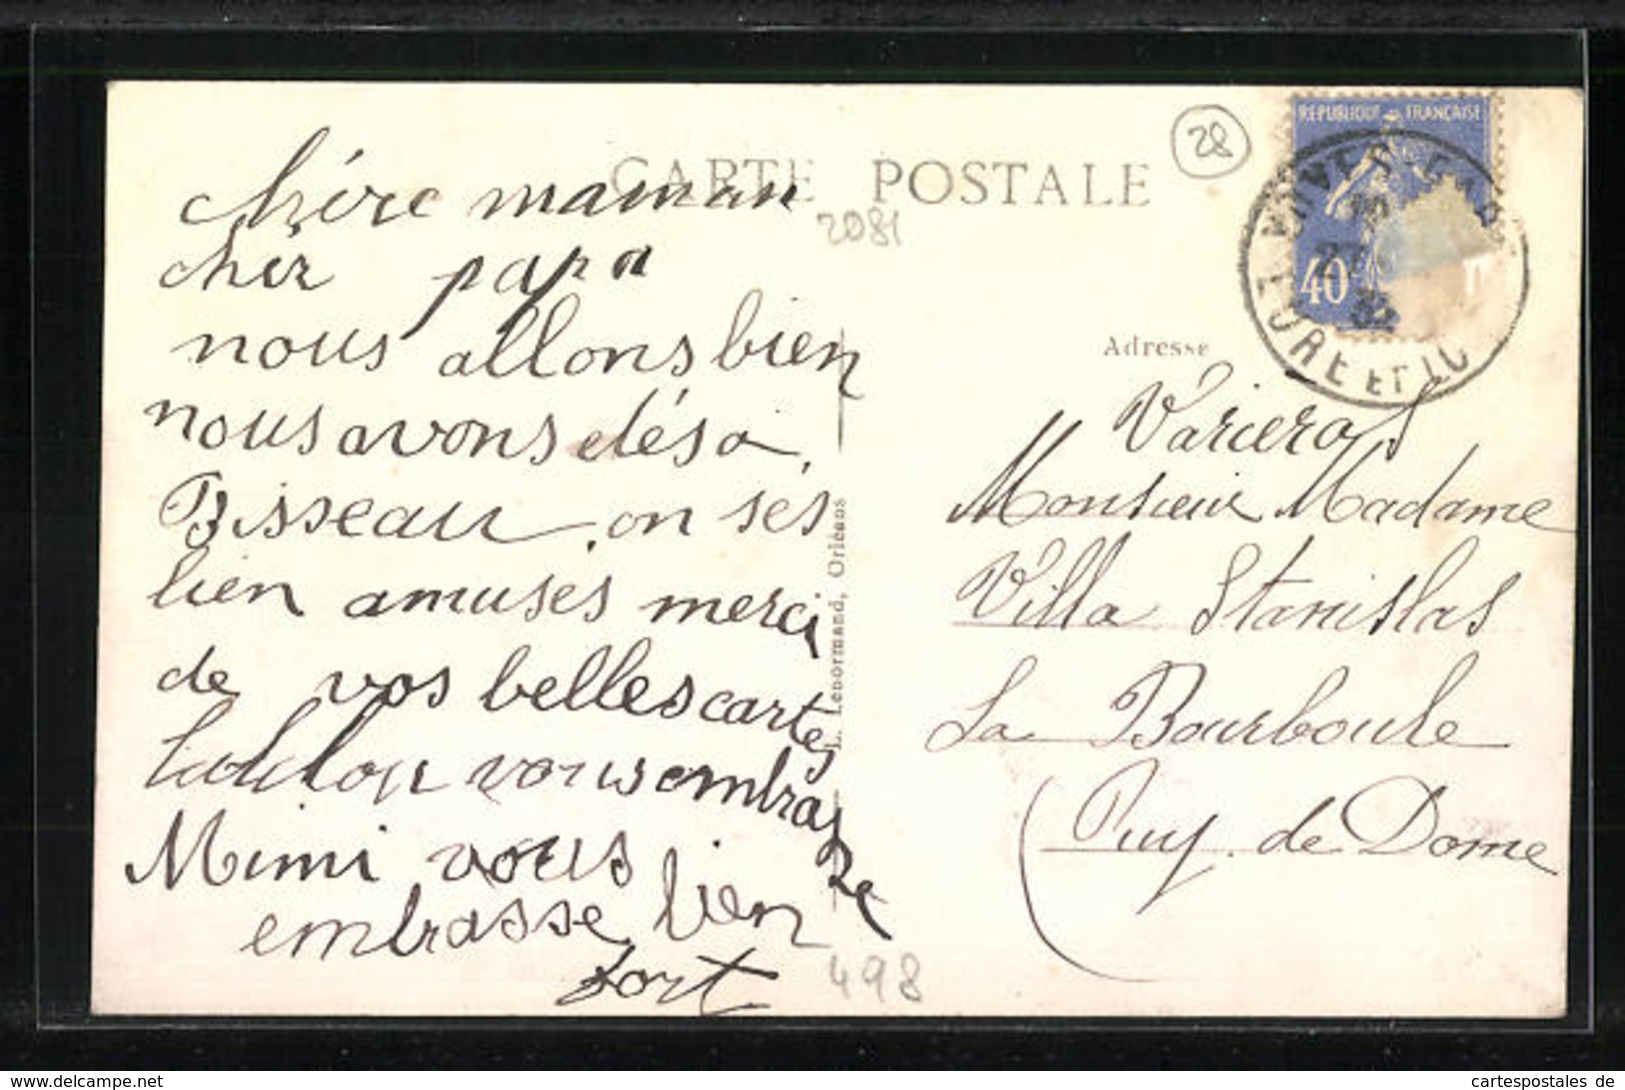 CARTE POSTALE
28
2081
REPUBLIQUE FRANÇAISE
40
27
EURE ET LO
chère maman
cher papa
nous allons bien
nous avons été à
Bisseau, on ses
bien amuses merci
de vos belles cartes
vous embrasse
Mimi vous
embrasse bien
fort
498
E. Lenormand, Orléans
Adresse
Varieras
Monsieur Madame
Villa Stanislas
La Bourboule
(Puy de Dome
cartespostales.de
www.cartespostales.de